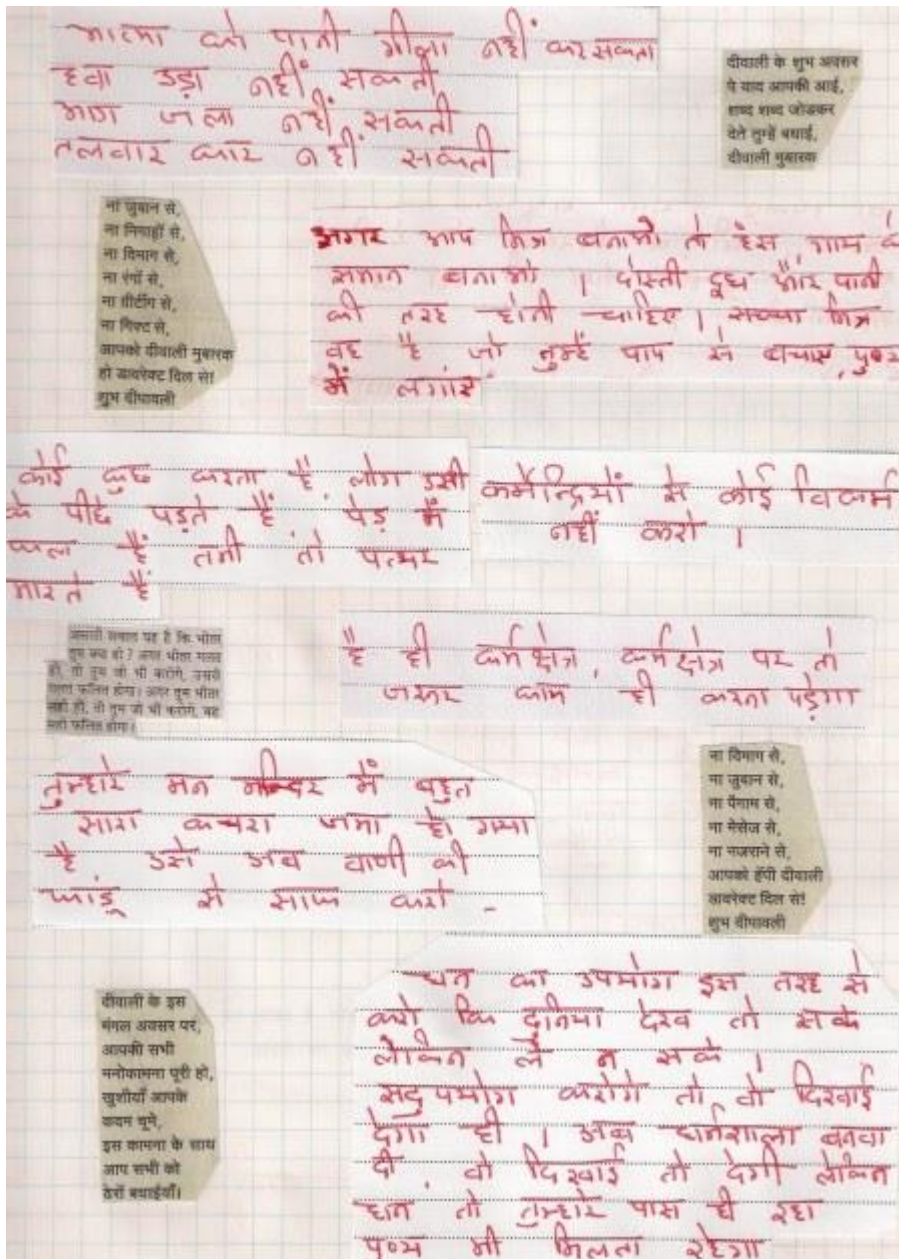 आत्मा को पानी गीला नहीं कर सकता
हवा उड़ा नहीं सकती
आग जला नहीं सकती
तलवार काट नहीं सकती
दीवाली के शुभ अवसर
पे याद आपकी आई,
शब्द शब्द जोडकर
देते तुम्हें बधाई,
दीवाली मुबारक
ना जुबान से,
ना निगाहों से,
ना दिमाग से,
ना रंगों से,
ना ग्रीटींग से,
ना गिफ्ट से,
आपको दीवाली मुबारक
हो डायरेक्ट दिल से!
शुभ दीपावली
अगर आप मित्र बनाओ तो हंस, गाय के
समान बनाओ । दोस्ती दूध और पानी
की तरह होनी चाहिए । सच्चा मित्र
वह है जो तुम्हें पाप से बचाए, पुण्य
में लगाएं
कोई कुछ करता है, लोग उसी
के पीछे पड़ते हैं, पेड़ में
फल हैं तभी तो पत्थर
मारते हैं
कर्मेन्द्रियों से कोई विकर्म
नहीं करो ।
असली सवाल यह है कि भीतर
तुम क्या हो? अगर भीतर गलत
हो, तो तुम जो भी करोगे, उससे
गलत फलित होगा। अगर तुम भीतर
सही हो, तो तुम जो भी करोगे, वह
सही फलित होगा।
है ही कर्मक्षेत्र, कर्मक्षेत्र पर तो
जरूर काम ही करना पड़ेगा
तुम्हारे मन मन्दिर में बहुत
सारा कचरा जमा हो गया
है उसे अब वाणी की
झाडू से साफ करो
ना दिमाग से,
ना जुबान से,
ना पैगाम से,
ना मेसेज से,
ना नजराने से,
आपको हॅपी दीवाली
डायरेक्ट दिल से!
शुभ दीपावली
धन का उपयोग इस तरह से
करो कि दुनिया देख तो सके
लेकिन ले न सके ।
सदुपयोग करोगे तो वो दिखाई
देगा ही । अब धर्मशाला बनवा
दी, वो दिखाई तो देगी लेकिन
धन तो तुम्हारे पास ही रहा
पुण्य भी मिलता रहेगा
दीवाली के इस
मंगल अवसर पर,
आपकी सभी
मनोकामना पूरी हो,
खुशीयाँ आपके
कदम चूमे,
इस कामना के साथ
आप सभी को
ढेरों बधाईयाँ।